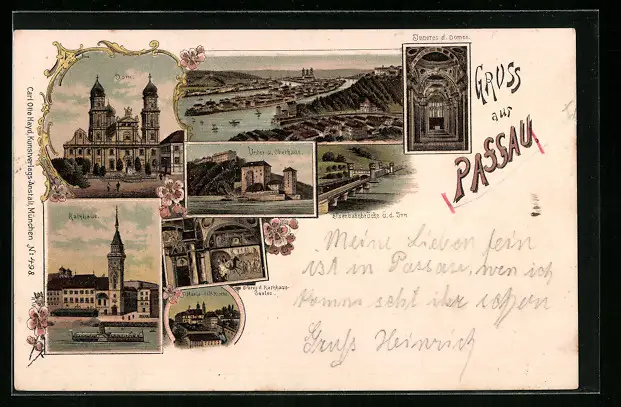 Dom.
Inneres d. Domes.
Gruss
aus
PASSAU
Unter- u. Oberhaus.
Eisenbahnbrücke ü. d. Inn
Rathhaus.
Inneres d. Rathhaus-
Saales.
Mariahilfkirche
Carl Otto Hayd, Kunstverlags-Anstalt, München Nº 498
Meine Lieben fein
ist in Passau, wen ich
komme seht ihr schon
Gruß Heinrich